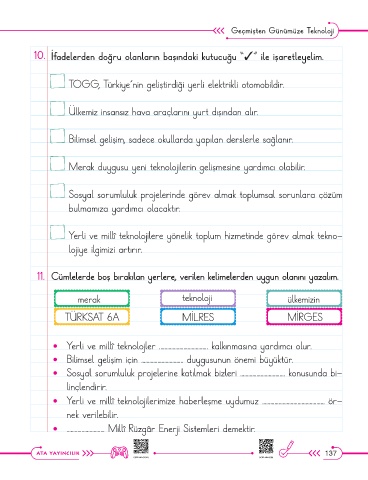 Geçmişten Günümüze Teknoloji
10. İfadelerden doğru olanların başındaki kutucuğu "✓" ile işaretleyelim.
TOGG, Türkiye'nin geliştirdiği yerli elektrikli otomobildir.
Ülkemiz insansız hava araçlarını yurt dışından alır.
Bilimsel gelişim, sadece okullarda yapılan derslerle sağlanır.
Merak duygusu yeni teknolojilerin gelişmesine yardımcı olabilir.
Sosyal sorumluluk projelerinde görev almak toplumsal sorunlara çözüm
bulmamıza yardımcı olacaktır.
Yerli ve millî teknolojilere yönelik toplum hizmetinde görev almak tekno-
lojiye ilgimizi artırır.
11. Cümlelerde boş bırakılan yerlere, verilen kelimelerden uygun olanını yazalım.
merak teknoloji ülkemizin
TÜRKSAT 6A MİLRES MİRGES
• Yerli ve millî teknolojiler ........................ kalkınmasına yardımcı olur.
• Bilimsel gelişim için ..................... duygusunun önemi büyüktür.
• Sosyal sorumluluk projelerine katılmak bizleri ...................... konusunda bi-
linçlendirir.
• Yerli ve millî teknolojilerimize haberleşme uydumuz ............................... ör-
nek verilebilir.
• .................. Millî Rüzgâr Enerji Sistemleri demektir.
ATA YAYINCILIK
137